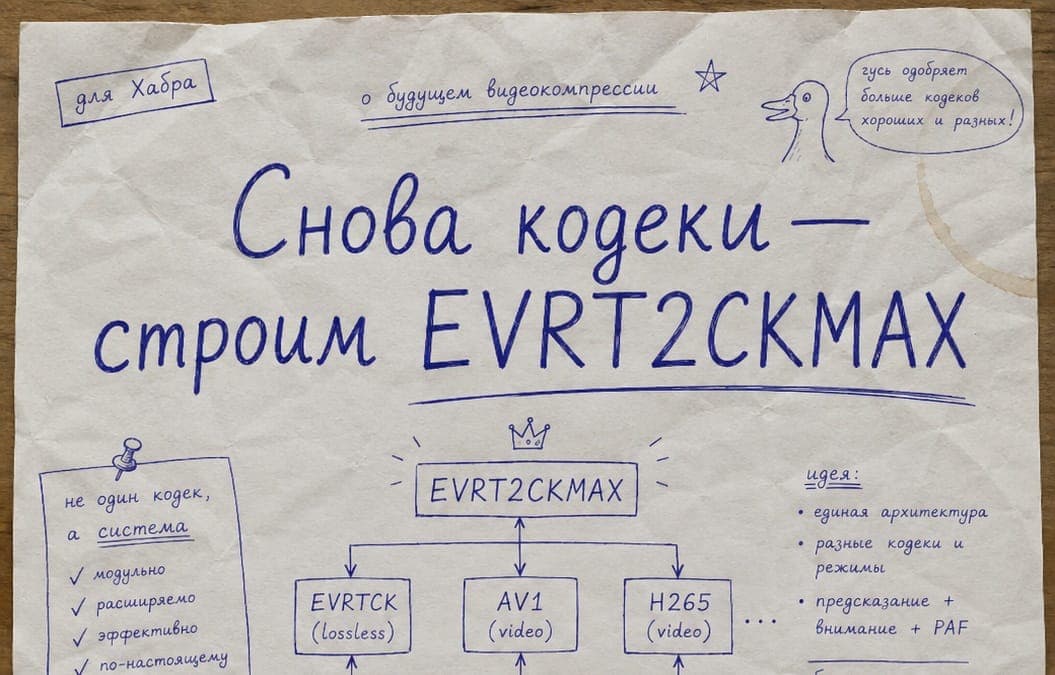 для Хабра
о будущем видеокомпрессии
гусь одобряет
больше кодеков
хороших и разных!
Снова кодеки —
строим EVRT2CKMAX
не один кодек,
а система
✓ модульно
✓ расширяемо
✓ эффективно
✓ по-настоящему
EVRT2CKMAX
EVRTCK
(lossless)
AV1
(video)
H265
(video)
...
идея:
• единая архитектура
• разные кодеки и
режимы
• предсказание +
внимание + PAF